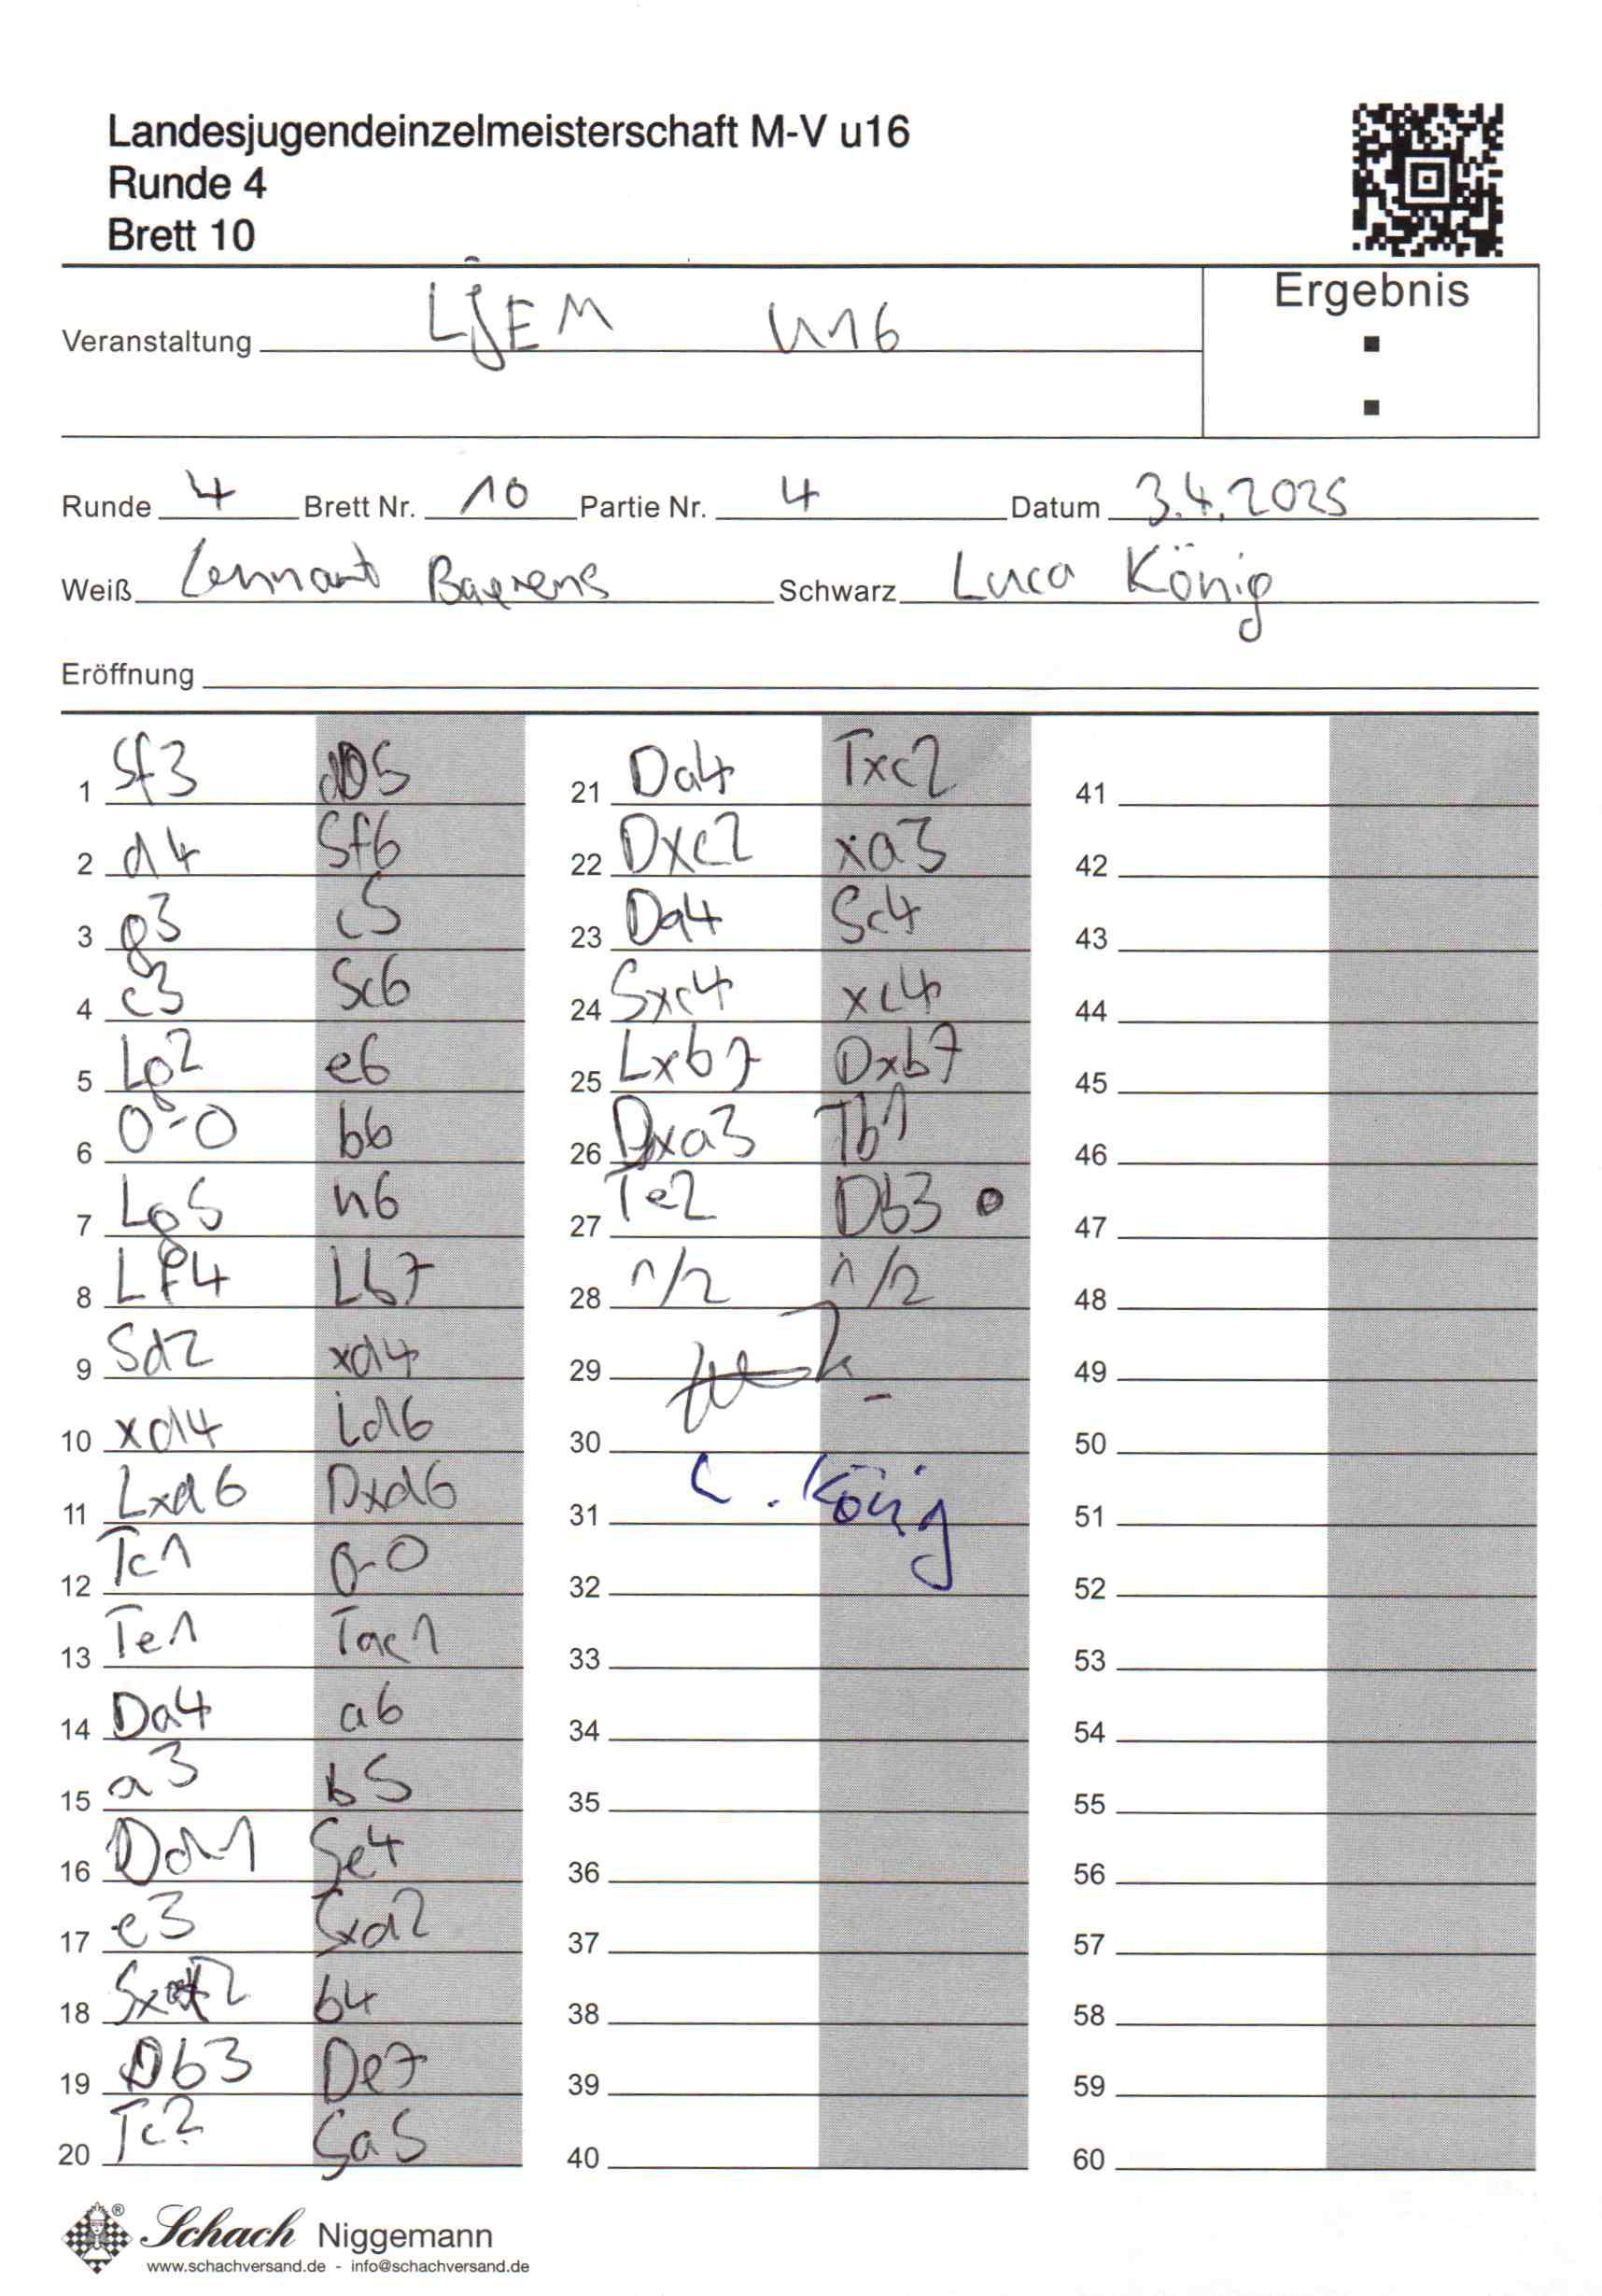 Landesjugendeinzelmeisterschaft M-V u16
Runde 4
Brett 10
Ergebnis
Veranstaltung LJEM U16
Runde 4 Brett Nr. 10 Partie Nr. 4 Datum 3.4.2025
Weiß Lennart Schwarz Luca König
Eröffnung
1 Sf3 d5
2 d4 Sf6
3 g3 c5
4 c3 Sc6
5 Lg2 e6
6 0-0 b6
7 Lg5 h6
8 Lf4 Lb7
9 Sd2 xd4
10 xd4 Ld6
11 Lxd6 Dxd6
12 Tc1 0-0
13 Te1 Tac1
14 Da4 a6
15 a3 b5
16 Dd1 Se4
17 e3 Sxd2
18 Sxd2 b4
19 Db3 De7
20 Tc2 Sa5
21 Da4 Txc2
22 Dxc2 xa3
23 Da4 Sc4
24 Sxc4 xc4
25 Lxb7 Dxb7
26 Dxa3 Tb1
27 Te2 Db3
28 1/2 1/2
29
30
31 L. König
32
33
34
35
36
37
38
39
40
41
42
43
44
45
46
47
48
49
50
51
52
53
54
55
56
57
58
59
60
Schach Niggemann
www.schachversand.de - info@schachversand.de